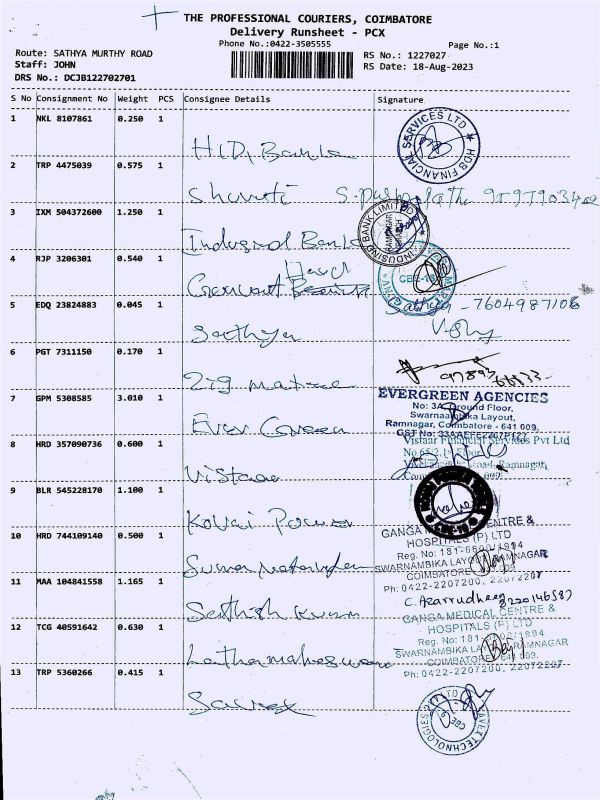 THE PROFESSIONAL COURIERS, COIMBATORE
Delivery Runsheet - PCX
Phone No.:0422-3505555
Page No.:1
Route: SATHYA MURTHY ROAD
Staff: JOHN
DRS No.: DCJB122702701
RS No.: 1227027
RS Date: 18-Aug-2023
S No Consignment No Weight PCS Consignee Details Signature
1 NKL 8107861 0.250 1
HDB FINANCIAL SERVICES LTD
2 TRP 4475039 0.575 1
3 IXM 504372600 1.250 1
Indusind Bank
INDUSIND BANK LIMITED
4 RJP 3206301 0.540 1
5 EDQ 23824883 0.045 1
Sathya
Sathya - 7604987106
6 PGT 7311150 0.170 1
7 GPM 5308585 3.010 1
Ever Green
EVERGREEN AGENCIES
No: 3A, Ground Floor,
Swarnaambika Layout,
Ramnagar, Coimbatore - 641 009.
8 HRD 357090736 0.600 1
Vistaar
Vistaar Financial Services Pvt Ltd
9 BLR 545228170 1.100 1
Kovai Power
10 HRD 744109140 0.500 1
GANGA MEDICAL CENTRE &
HOSPITALS (P) LTD
Reg. No: 181-5600/1994
SWARNAMBIKA LAYOUT, RAMNAGAR
COIMBATORE
Ph: 0422-2207200, 22072207
11 MAA 104841558 1.165 1
Sathish Kumar
C. Azarrudheen
12 TCG 40591642 0.630 1
Lathamaheswari
GANGA MEDICAL CENTRE &
HOSPITALS (P) LTD
Reg. No: 181-5600/1994
SWARNAMBIKA LAYOUT, RAMNAGAR
COIMBATORE - 641 009.
Ph: 0422-2207200, 22072207
13 TRP 5360266 0.415 1
Savex
SAVEX TECHNOLOGIES PVT LTD